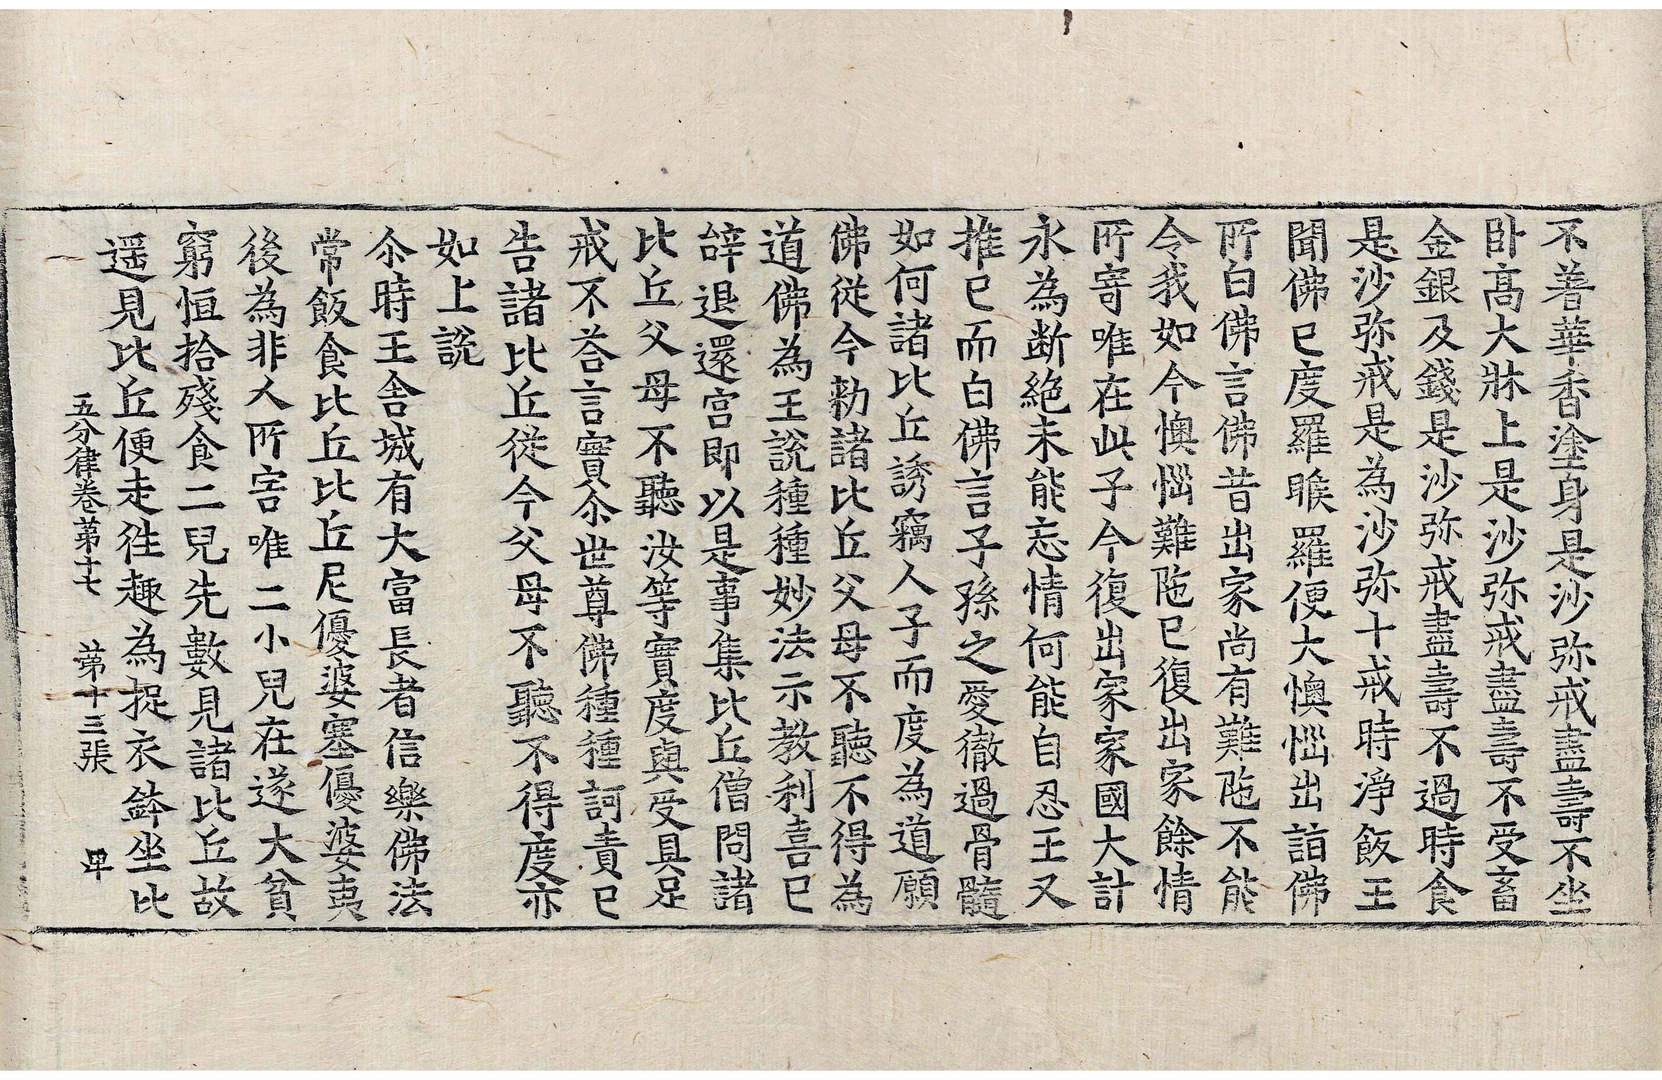 不著華香塗身是沙弥戒盡壽不坐
卧髙大牀上是沙弥戒盡壽不受畜
金銀及錢是沙弥戒盡壽不過時食
是沙弥戒是為沙弥十戒時淨飯王
聞佛已度羅睺羅便大懊惱出詣佛
所白佛言佛昔出家尚有難陁不能
令我如今懊惱難陁已復出家餘情
所寄唯在此子今復出家家國大計
永為断絶未能忘情何能自忍王又
推已而白佛言子孫之愛徹過骨髓
如何諸比丘誘竊人子而度為道願
佛従今勑諸比丘父母不聽不得為
道佛為王說種種妙法示教利喜已
辝退還宫即以是事集比丘僧問諸
比丘父母不聽汝等實度與受具足
戒不荅言實尒世尊佛種種訶責已
告諸比丘従今父母不聽不得度亦
如上說
尒時王舍城有大富長者信樂佛法
常飯食比丘比丘尼優婆塞優婆夷
後為非人所害唯二小兒在遂大貧
窮恒拾殘食二兒先數見諸比丘故
遥見比丘便走往趣為捉衣鉢坐比
五分律卷第十七 第十三張